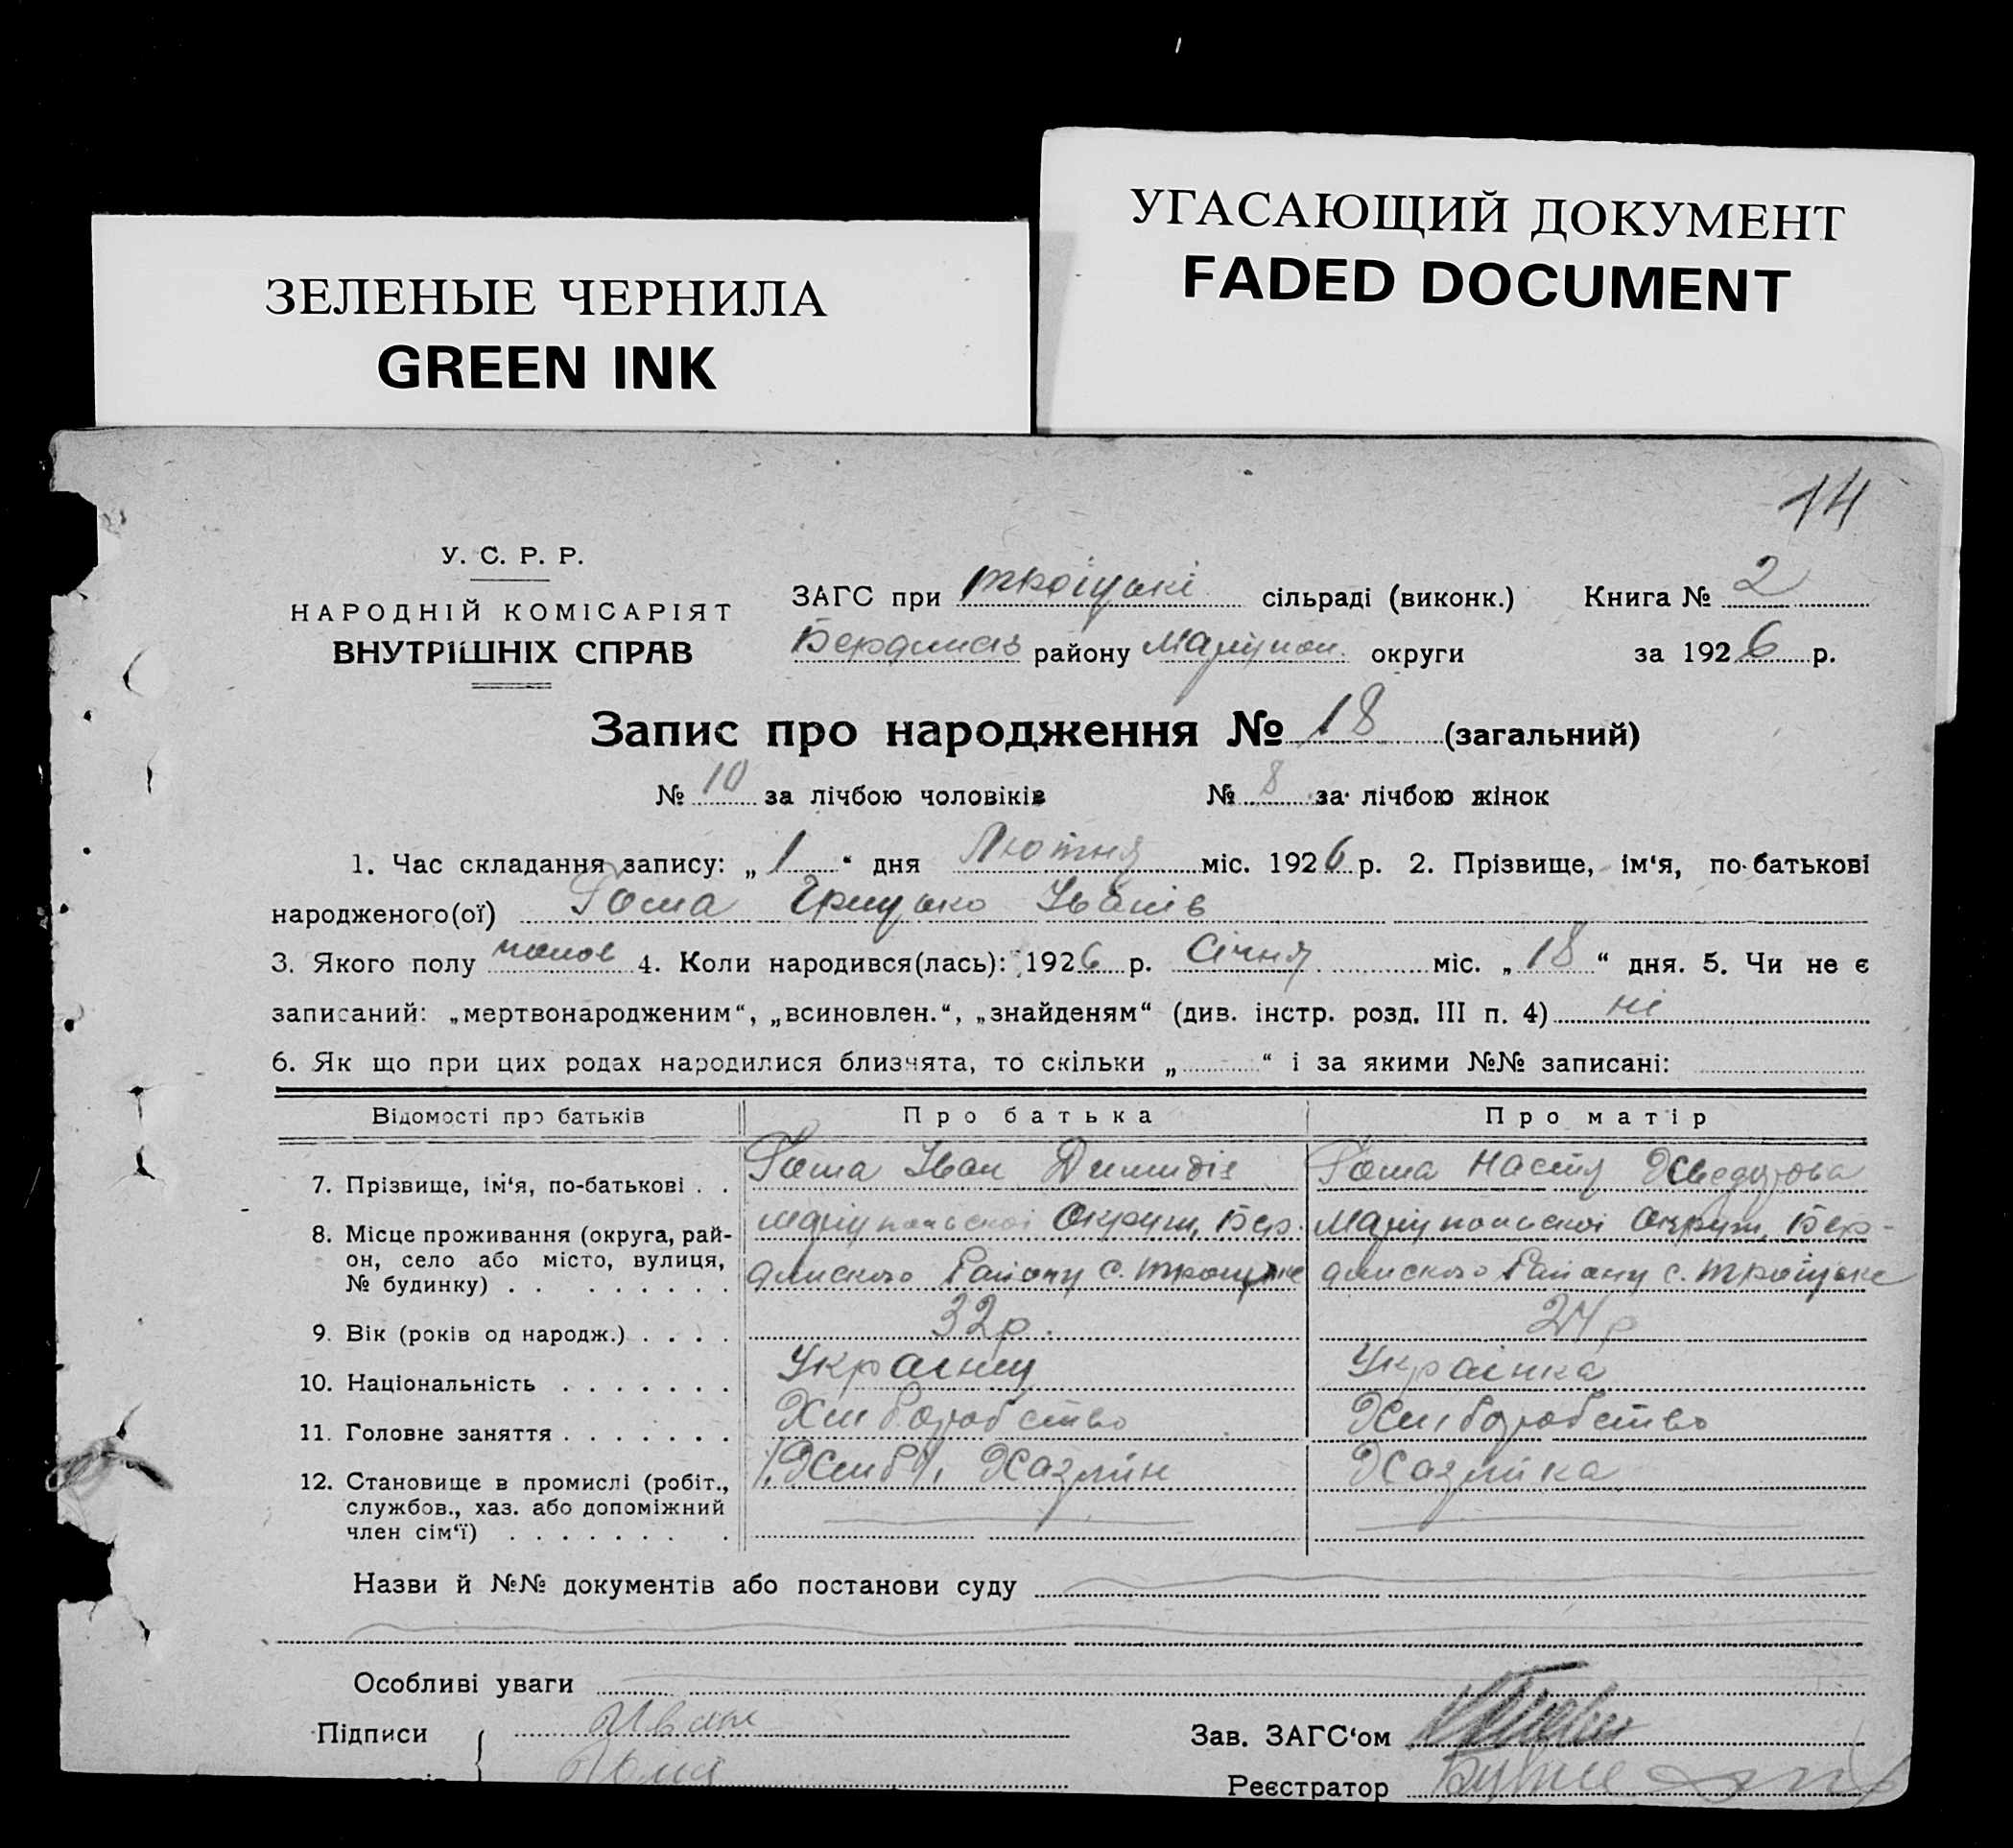 УГАСАЮЩИЙ ДОКУМЕНТ
FADED DOCUMENT
ЗЕЛЕНЫЕ ЧЕРНИЛА
GREEN INK
14
У. С. Р. Р.
НАРОДНІЙ КОМІСАРІЯТ
ВНУТРІШНІХ СПРАВ
ЗАГС при троіцькі сільраді (виконк.) Книга № 2
району Маріупол. округи за 1926 р.
Запис про народження № 18 (загальний)
№ 10 за лічбою чоловіків № 8 за лічбою жінок
1. Час складання запису: „1“ дня Лютня міс. 1926 р. 2. Прізвище, ім‘я, по-батькові
народженого(ої) Грицько Іванів
3. Якого полу чолов 4. Коли народився(лась): 1926 р. Січня міс. „18“ дня. 5. Чи не є
записаний: „мертвонародженим“, „всиновлен.“, „знайденям“ (див. інстр. розд. III п. 4) ні
6. Як що при цих родах народилися близнята, то скільки „ “ і за якими №№ записані:
Відомості про батьків Про батька Про матір
7. Прізвище, ім‘я, по-батькові . . Іван Настя
8. Місце проживання (округа, рай- Маріупольскоі Округи, Бер- Маріупольскоі Округи, Бер-
он, село або місто, вулиця, дянского Району с. Троіцьке дянского Району с. Троіцьке
№ будинку) . . . . . . . .
9. Вік (років од народж.) . . . . 32 р. 24 р
10. Національність . . . . . . . Украінец Украінка
11. Головне заняття . . . . . . . Хліборобство Хліборобство
12. Становище в промислі (робіт., Хазяін Хазяйка
службов., хаз. або допоміжний
член сім‘ї) . . . . . . . .
Назви й №№ документів або постанови суду
Особливі уваги
Підписи Иван Зав. ЗАГС‘ом
Реєстратор